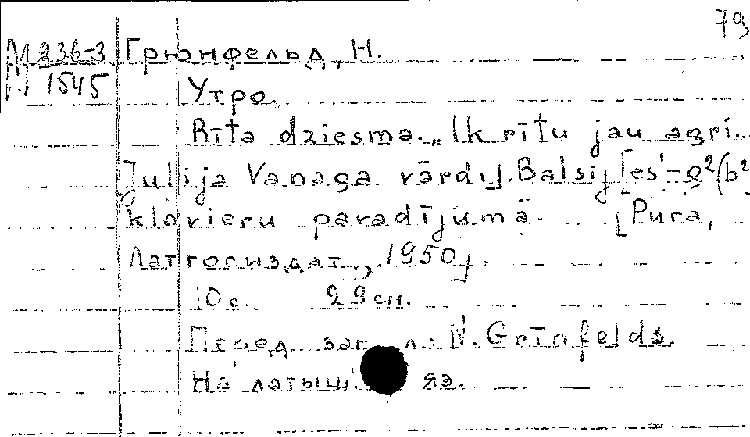 79
М 236-3 Грюнфельд, Н.
1545
Утро.
Rīta dziesma. „Ik rītu jau agri.
Julija Vanaga vārdi]. Balsij [es'-g²(b²
klavieru pavadījumā. [Рига,
Латгосиздат, 1950].
10 с. 29 см.
Перед заг. : N. Grīnfelds.
На латыш яз.